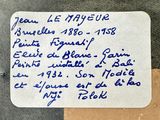 Jean LE MAYEUR
Bruxelles 1880-1958
Peintre Figuratif
Elève de Blanc-Garin
Peintre installé à Bali
en 1932. Son Modèle
et épouse est de là-bas
Ni Polok